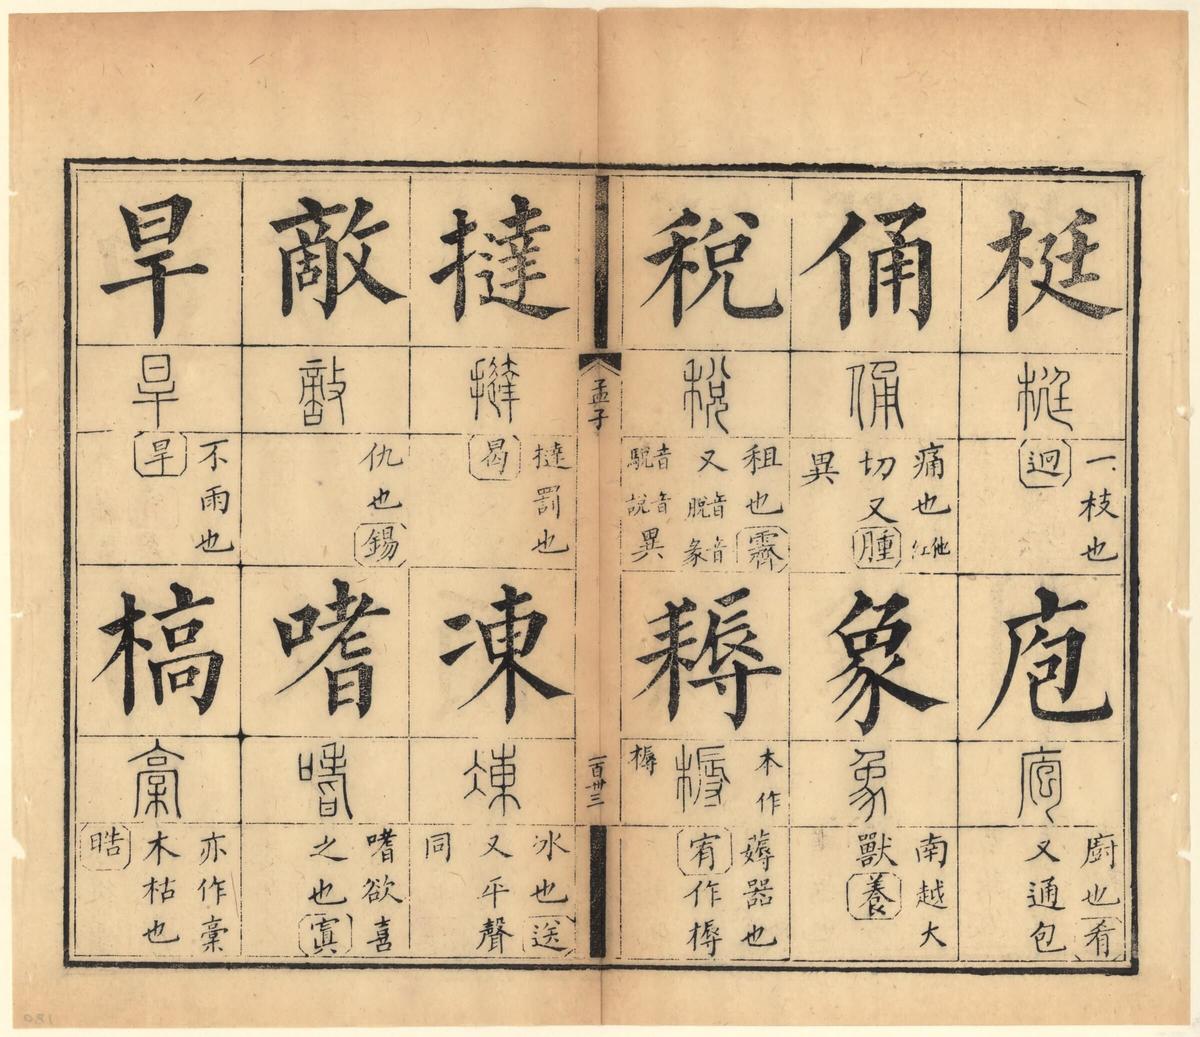 梃
梃
一枝也
迥
庖
庖
廚也肴
又通包
俑
俑
痛也他紅
切又腫
異
象
象
南越大
獸養
稅
稅
租也霽
又音脫音彖
音駾音說異
耨
耨
本作
槈
薅器也
宥作槈
孟子
一百卅三
撻
撻
撻罰也
曷
凍
凍
冰也送
又平聲
同
敵
敵
仇也錫
嗜
嗜
嗜欲喜
之也寘
旱
旱
不雨也
旱
槁
槀
亦作槀
木枯也
晧
081